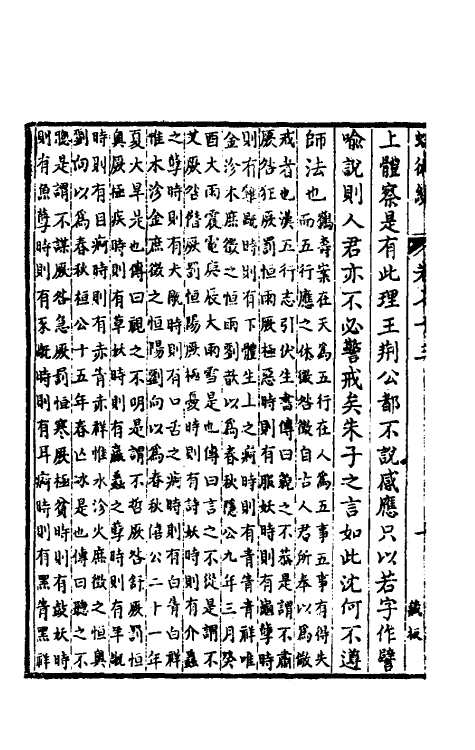 蛾術編 卷七十三 十 藏板
上體察是有此理王荆公都不說感應只以若字作譬
喻說則人君亦不必警戒矣朱子之言如此沈何不遵
師法也
鶴壽案在天爲五行在人爲五事五事有得失
而五行應之休徵咎徵自古人君所奉以爲儆
戒者也漢五行志引伏生書傳曰貌之不恭是謂不肅
厥咎狂厥罰恒雨厥極惡時則有服妖時則有龜孽時
則有雞旤時則有下體生上之痾時則有青眚青祥唯
金沴木庶徵之恒雨劉歆以爲春秋隱公九年三月癸
酉大雨震電庚辰大雨雪是也傳曰言之不從是謂不
艾厥咎僭厥罰恒陽厥極憂時則有詩妖時則有介蟲
之孽時則有犬旤時則有口舌之痾時則有白眚白祥
惟木沴金庶徵之恒陽劉向以爲春秋僖公二十一年
夏大旱是也傳曰視之不明是謂不悊厥咎舒厥罰恒
奥厥極疾時則有草妖時則有蠃蟲之孽時則有羊旤
時則有目痾時則有赤眚赤祥惟水沴火庶徵之恒奥
劉向以爲春秋桓公十五年春亡冰是也傳曰聽之不
聰是謂不謀厥咎急厥罰恒寒厥極貧時則有鼓妖時
則有魚孽時則有豕旤時則有耳痾時則有黑眚黑祥